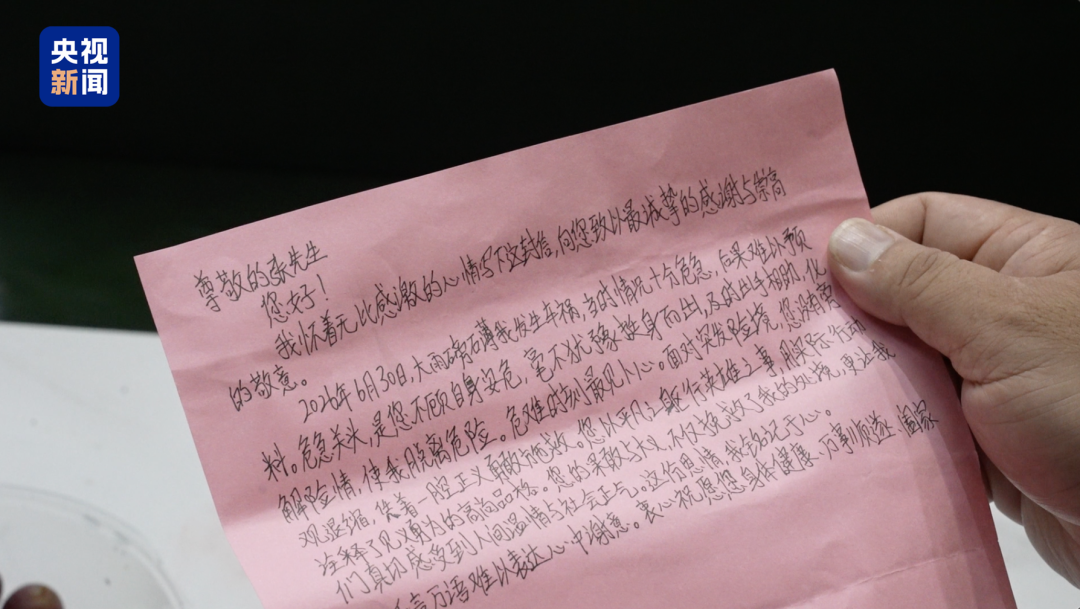 央视
新闻
尊敬的张先生
您好!
我怀着无比感激的心情写下这封信,向您致以最诚挚的感谢与崇高
的敬意。
2026年6月30日,大雨磅礴我发生车祸,当时情况十分危急,后果难以预
料。危急关头,是您不顾自身安危,毫不犹豫挺身而出,及时出手相助,化
解险情,使我脱离危险。危难时刻最见人心。面对突发险境,您没有旁
观退缩,凭着一腔正义勇敢施救。您以平凡之躯行英雄之事,用实际行动
诠释了见义勇为的高尚品格。您的果敢与大义,不仅挽救了我的处境,更让我
们真切感受到人间温情与社会正气。这份恩情我铭记于心。
言万语难以表达心中谢意。衷心祝愿您身体健康、万事顺遂、阖家